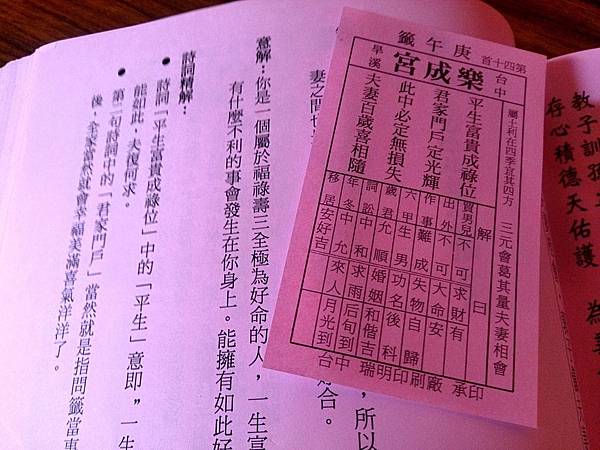 第四十首
庚午籤
台中
樂成宮
旱溪
屬土利在四季宜其四方 三元會葛其量夫妻相會
平生富貴成祿位
君家門戶定光輝
此中必定無損失
夫妻百歲喜相隨
解曰
賈男兒不可求財有
出外不可大命安
作事難成失物自歸
六甲生男功名後科
歲君允順婚姻和偕吉
詞訟中和求雨后旬到
年冬中允來人月光到
移居安好吉
瑞明印刷廠承印
教子訓孫
存心積德天佑護
為
，所以
合。
妻之間也
意解：你是一個屬於福祿壽三全極為好命的人，一生富
有什麼不利的事會發生在你身上。能擁有如此好
詩詞精解：
● 詩詞「平生富貴成祿位」中的「平生」意即，一生
能如此，夫復何求。
● 第二句詩詞中的「君家門戶」當然就是指問籤當事
後，全家當然就會幸福美滿喜氣洋洋了。